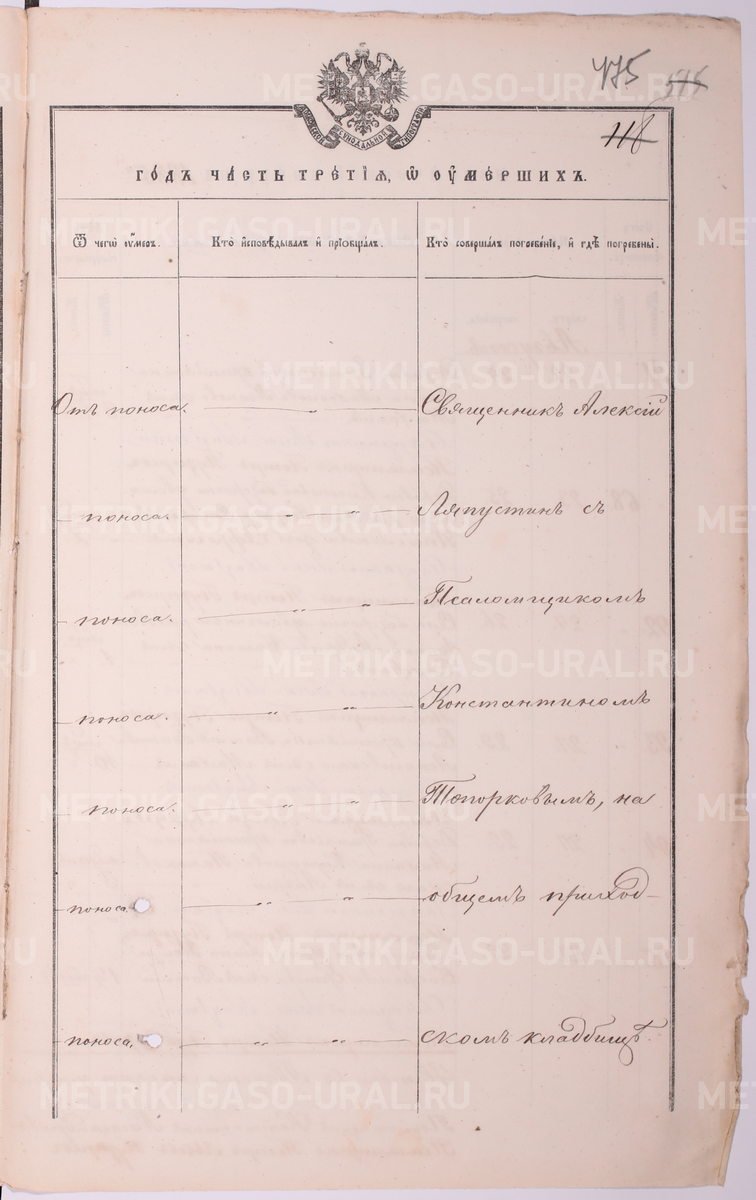 475 515
118
МОСКОВСКОЙ СѴНОДАЛЬНОЙ ТИПОГРАФІИ
ГО́ДЪ ЧА́СТЬ ТРЕ́ТІѦ, Ѡ ОУМЕ́РШИХЪ.
Ѿ чегѡ̀ оу́меръ.
Кто̀ и҆сповѣ́дывалъ и҆ прїѻбща́лъ.
Кто̀ соверша́лъ погребе́нїе, и҆ гдѣ̀ погребены̀.
Отъ поноса. — „ — Священникъ Алексій
– поноса. — „ „ — Ляпустинъ съ
– поноса. — „ „ — Псаломщикомъ
– поноса. — „ „ — Константиномъ
– поноса. — „ „ — Топорковымъ, на
– поноса. — „ „ — общемъ приход-
– поноса. — „ „ — скомъ кладбищѣ.
METRIKI.GASO-URAL.RU